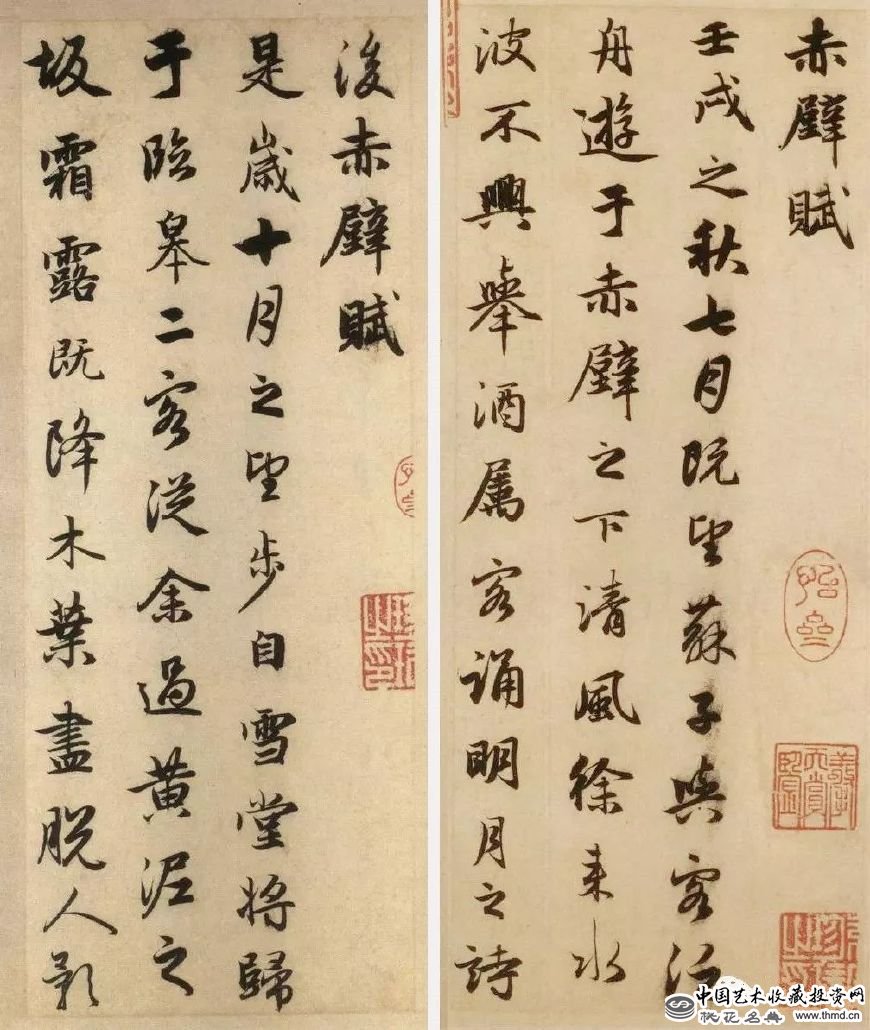 赤壁賦
壬戌之秋七月既望蘇子與客泛
舟遊于赤壁之下清風徐来水
波不興舉酒属客誦明月之詩
後赤壁賦
是歲十月之望步自雪堂將歸
于臨皋二客從余過黄泥之
坂霜露既降木葉盡脱人影
中国艺术收藏投资网
桃花名典 www.thmd.cn